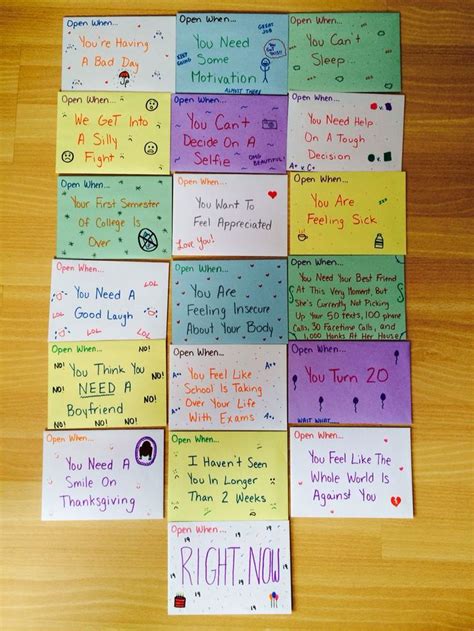 Open When...
You're Having
A Bad Day
Open When...
You Need
Some
Motivation
KEEP GOING
GREAT JOB
ALMOST THERE
Open When...
You Can't
Sleep
Open When...
We Get Into
A Silly
Fight
Open When...
You Can't
Decide On A
Selfie
OMG BEAUTIFUL!
Open When...
You Need Help
On A Tough
Decision
Open When...
Your First Semester
Of College Is
Over
Open When...
You Want To
Feel Appreciated
Love You!
Open When...
You Are
Feeling Sick
Open When...
You Need A
Good Laugh
LOL
LOL
LOL
LOL
Open When...
You Are
Feeling Insecure
About Your Body
Open When...
You Need Your Best Friend
At This Very Moment, But
She's Currently Not Picking
Up Your 50 texts, 100 phone
Calls, 30 Facetime Calls, and
1,000 Honks At Her House
Open When...
You Think You
NEED A
Boyfriend
NO!
NO!
NO!
NO!
NO!
NO!
Open When...
You Feel Like
School Is Taking
Over Your Life
With Exams
A++
A++
A++
Open When...
You Turn 20
WAIT WHAT...
Open When...
You Need A
Smile On
Thanksgiving
Open When...
I Haven't Seen
You In Longer
Than 2 Weeks
Open When...
You Feel Like The
Whole World Is
Against You
Open When...
RIGHT NOW
19
19
19
19
19